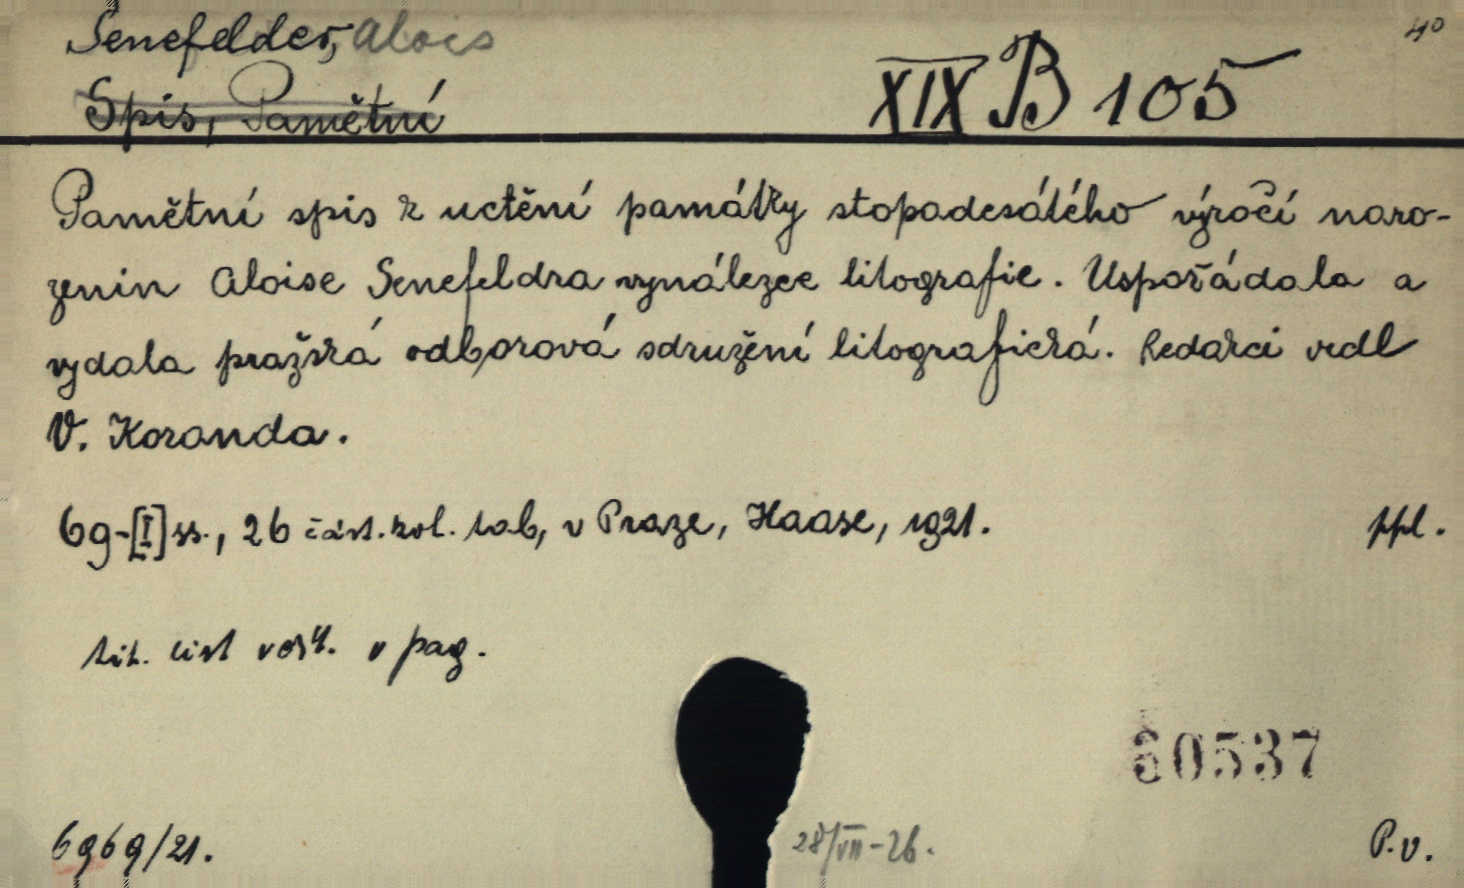 Senefelder, Alois
40
Spis, Pamětní
XIX B 105
Pamětní spis k uctění památky stopadesátého výročí naro-
zenin Aloise Senefeldra vynálezce litografie. Uspořádala a
vydala pražská odborová sdružení litografická. Redakci vedl
V. Koranda.
69-[I] ss., 26 část. kol. tab, v Praze, Haase, 1921.
ppl.
tit. list v pag.
30537
6969/21.
28/VII-26.
P.v.